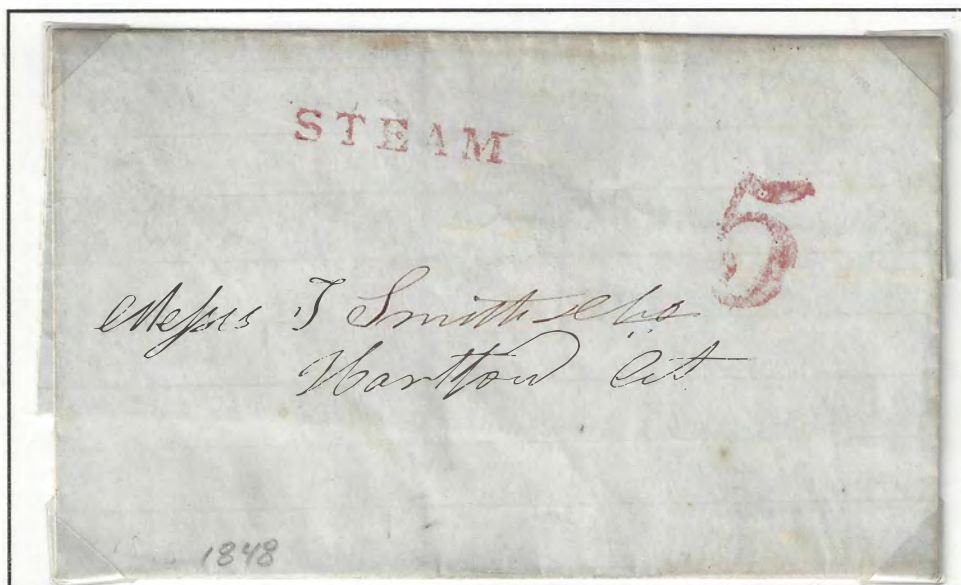 STEAM
5
Messrs T Smith & Co
Hartford Ct
1848